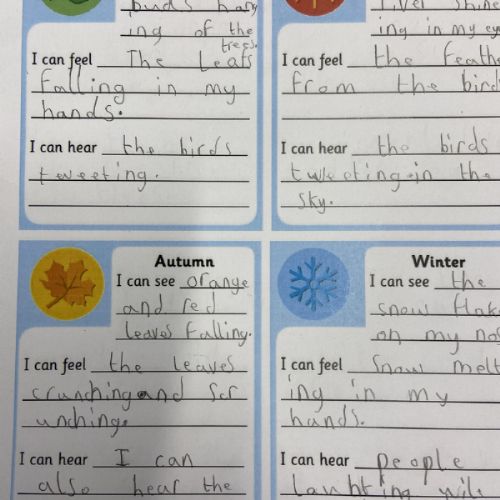 buds hang
ing of the
trees.
I can feel The Leafs
falling in my
hands.
I can hear the birds
tweeting.
shine
ing in my eye
I can feel the feath
from the bird
I can hear the birds
tweeting in the
sky.
Autumn
I can see orange
and red
leaves falling.
I can feel the leaves
crunching and scr
unching.
I can hear I can
also hear the
Winter
I can see the
snow flak
on my nos
I can feel Snow melt
ing in my
hands.
I can hear people